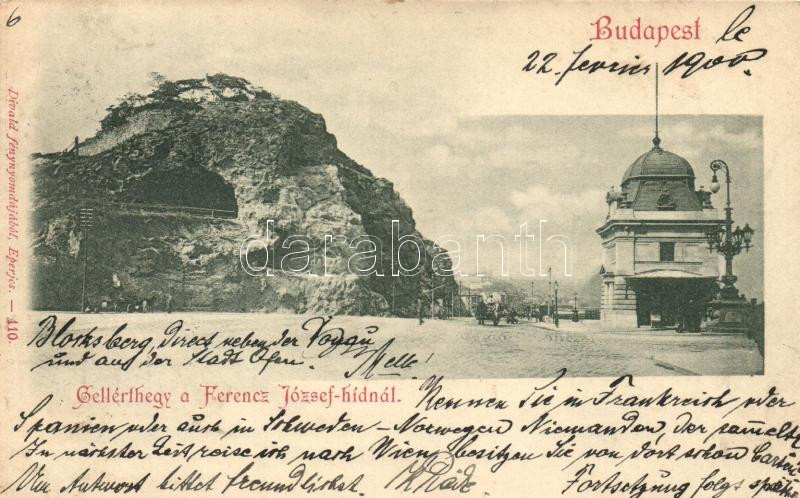 6
Budapest le
22 fevrier 1900.
Divald fénynyomdájából, Eperjes. — 110.
darabanth.com
Blocksberg direct neben der
und auf der Stadt Ofen.
Gellérthegy a Ferencz József-hídnál.
Kennen Sie in Frankreich oder
Spanien oder auch in Schweden – Norwegen Niemanden, der sammelt?
In nächster Zeit reise ich nach Wien, besitzen Sie von dort schon
Um Antwort bittet freundlichst.
Fortsetzung folgt